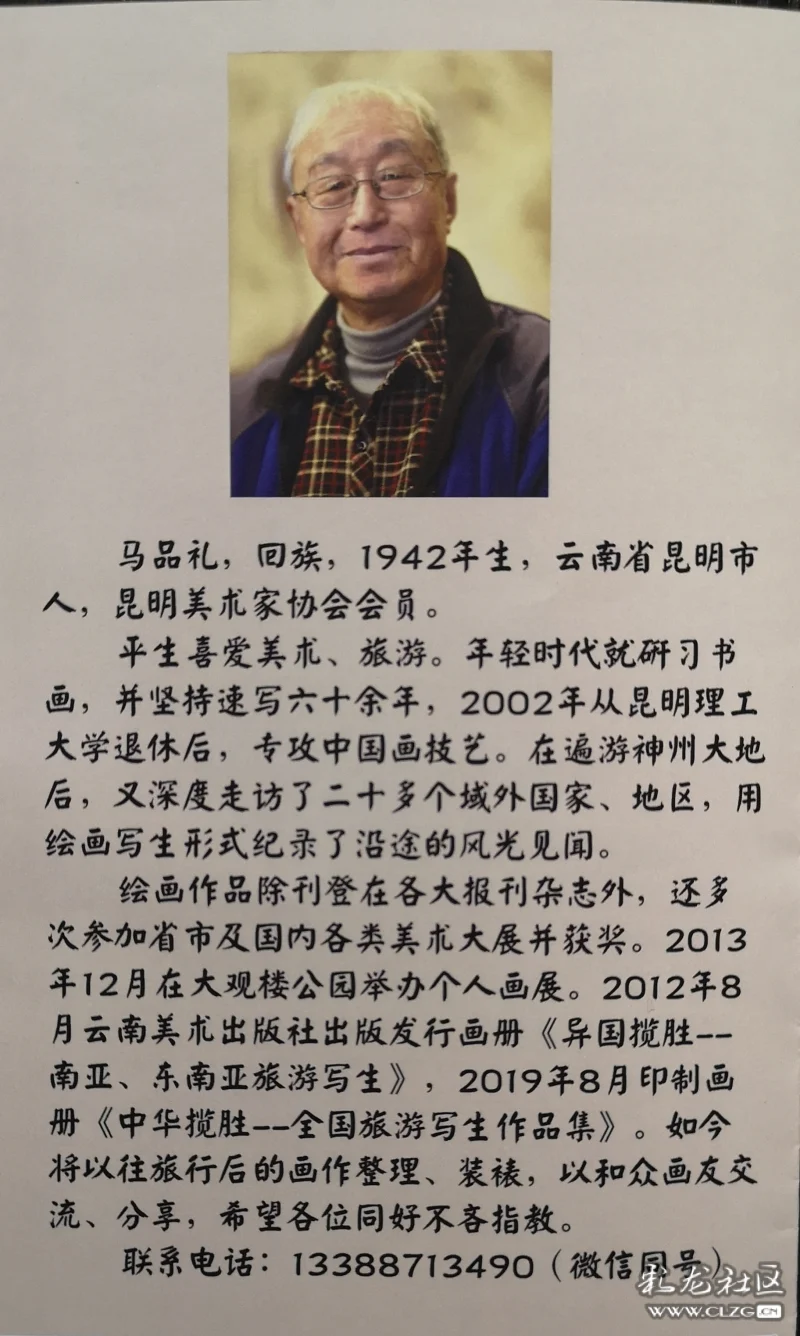 马品礼，回族，1942年生，云南省昆明市
人，昆明美术家协会会员。
平生喜爱美术、旅游。年轻时代就研习书
画，并坚持速写六十余年，2002年从昆明理工
大学退休后，专攻中国画技艺。在遍游神州大地
后，又深度走访了二十多个域外国家、地区，用
绘画写生形式纪录了沿途的风光见闻。
绘画作品除刊登在各大报刊杂志外，还多
次参加省市及国内各类美术大展并获奖。2013
年12月在大观楼公园举办个人画展。2012年8
月云南美术出版社出版发行画册《异国揽胜--
南亚、东南亚旅游写生》，2019年8月印制画
册《中华揽胜--全国旅游写生作品集》。如今
将以往旅行后的画作整理、装裱，以和众画友交
流、分享，希望各位同好不吝指教。
联系电话：13388713490（微信同号）
彩龙社区
WWW.CLZG.CN